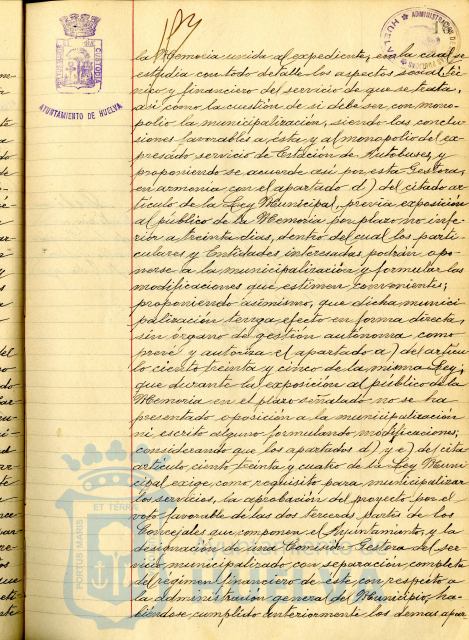 AYUNTAMIENTO DE HUELVA
la Memoria unida al expediente, en la cual se
estudia con todo detalle los aspectos social, téc-
nico y financiero del servicio de que se trata,
así como la cuestión de si debe ser con mono-
polio la municipalización, siendo las conclu-
siones favorables a ésta y al monopolio del ex-
presado servicio de Estación de Autobuses, y
proponiendo se acuerde así por esta Gestora,
en armonía con el apartado d) del citado ar-
tículo de la Ley Municipal, previa exposición
al público de la Memoria por plazo no infe-
rior a treinta días, dentro del cual los parti-
culares y Entidades interesadas podrán opo-
nerse a la municipalización y formular las
modificaciones que estimen convenientes;
proponiendo asimismo, que dicha munici-
palización tenga efecto en forma directa,
sin órgano de gestión autónoma como
prevé y autoriza el apartado a) del artícu-
lo ciento treinta y cinco de la misma Ley;
que durante la exposición al público de la
Memoria en el plazo señalado no se ha
presentado oposición a la municipalización
ni escrito alguno formulando modificaciones;
considerando que los apartados d) y e) del citado
artículo ciento treinta y cuatro de la Ley Muni-
cipal exige como requisito para municipalizar
los servicios, la aprobación del proyecto por el
voto favorable de las dos terceras partes de los
Concejales que componen el Ayuntamiento, y la
designación de una Comisión Gestora del ser-
vicio municipalizado con separación completa
del régimen financiero de éste con respecto a
la administración general del Municipio, ha-
biéndose cumplido anteriormente los demás apar
PORTUS MARIS ET TERRÆ